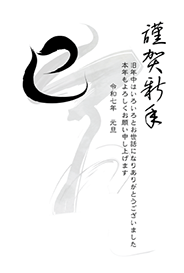 謹賀新年
旧年中はいろいろとお世話になりありがとうございました
本年もよろしくお願い申し上げます
令和七年　元旦
巳